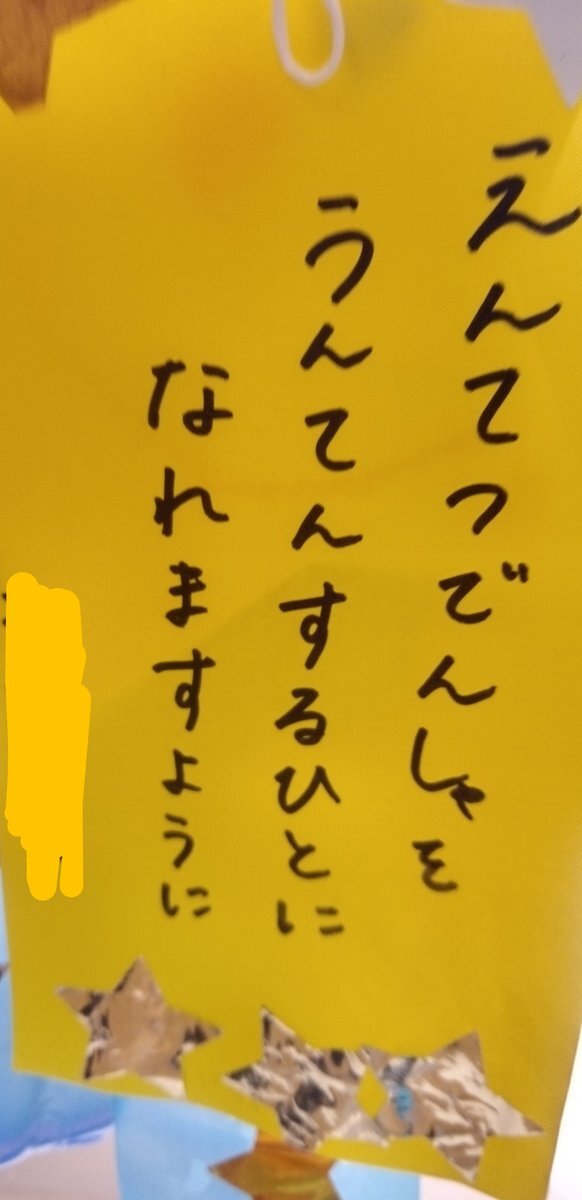 えんてつでんしゃを
うんてんするひとに
なれますように